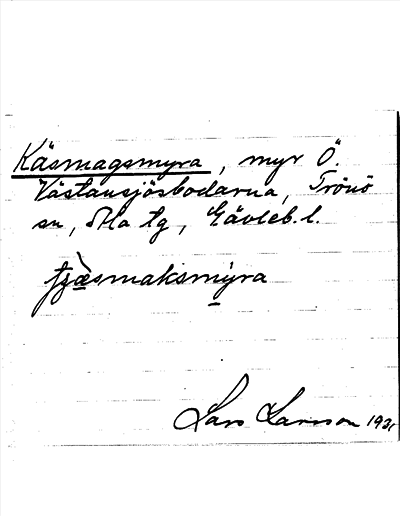 Käsmagsmyra, myr Ö.
Västansjösbodarna, Trönö
sn, Ala tg, Gävleb. l.
tjæ̀smaksmyra
Lars Larsson